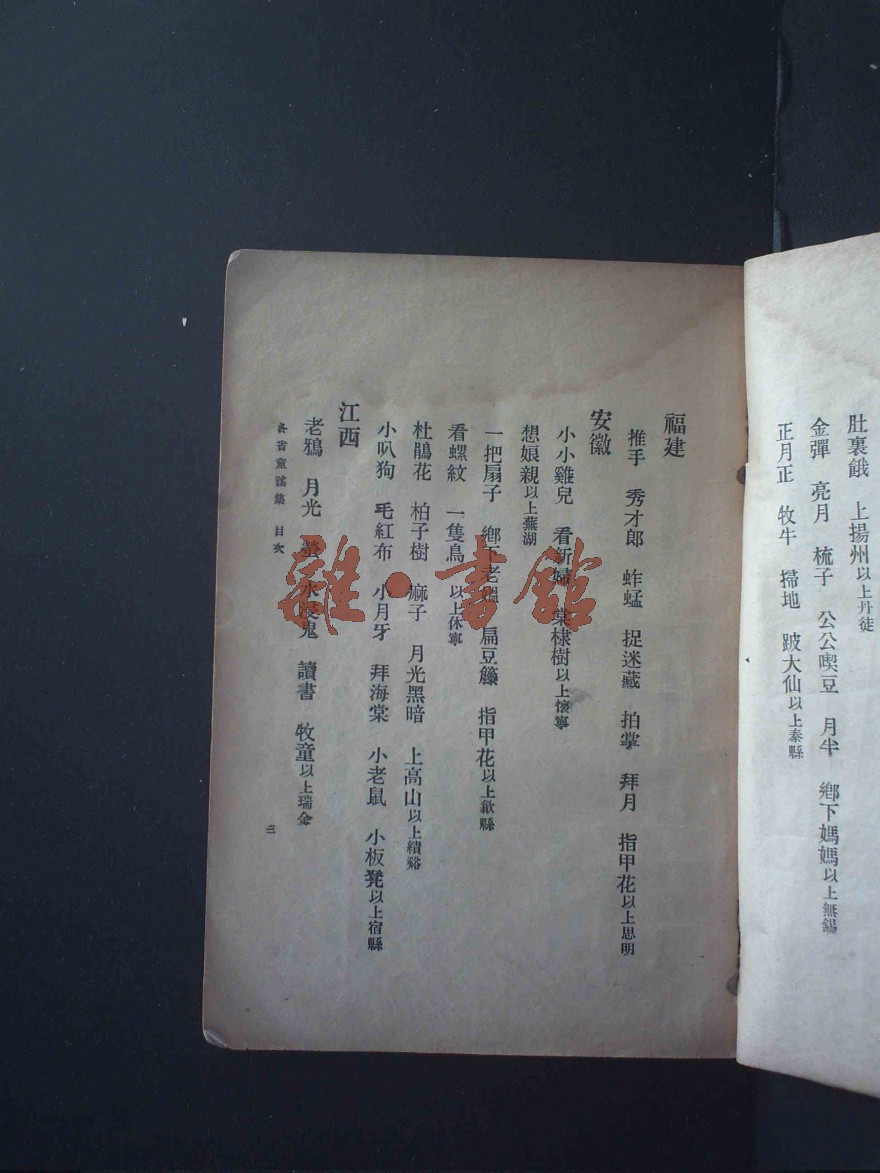 肚裏餓　上揚州以上丹徒
金彈　亮月　梳子　公公喫豆　月半　鄉下媽媽以上無錫
正月正　牧牛　掃地　跛大仙以上泰縣
福建
推手　秀才郎　蚱蜢　捉迷藏　拍掌　拜月　指甲花以上思明
安徽
小小雞兒　看新婦　棠棣樹以上懷寧
想娘親以上蕪湖
一把扇子　鄉下老媼　扁豆籐　指甲花以上歙縣
看螺紋　一隻鳥　以上休寧
杜鵑花　柏子樹　麻子　月光黑暗　上高山以上績谿
小叭狗　毛紅布　小月牙　拜海棠　小老鼠　小板凳以上宿縣
江西
老鴉　月光　螢　水浸鬼　讀書　牧童以上瑞金
各省童謠集　目次
三
雜·書館